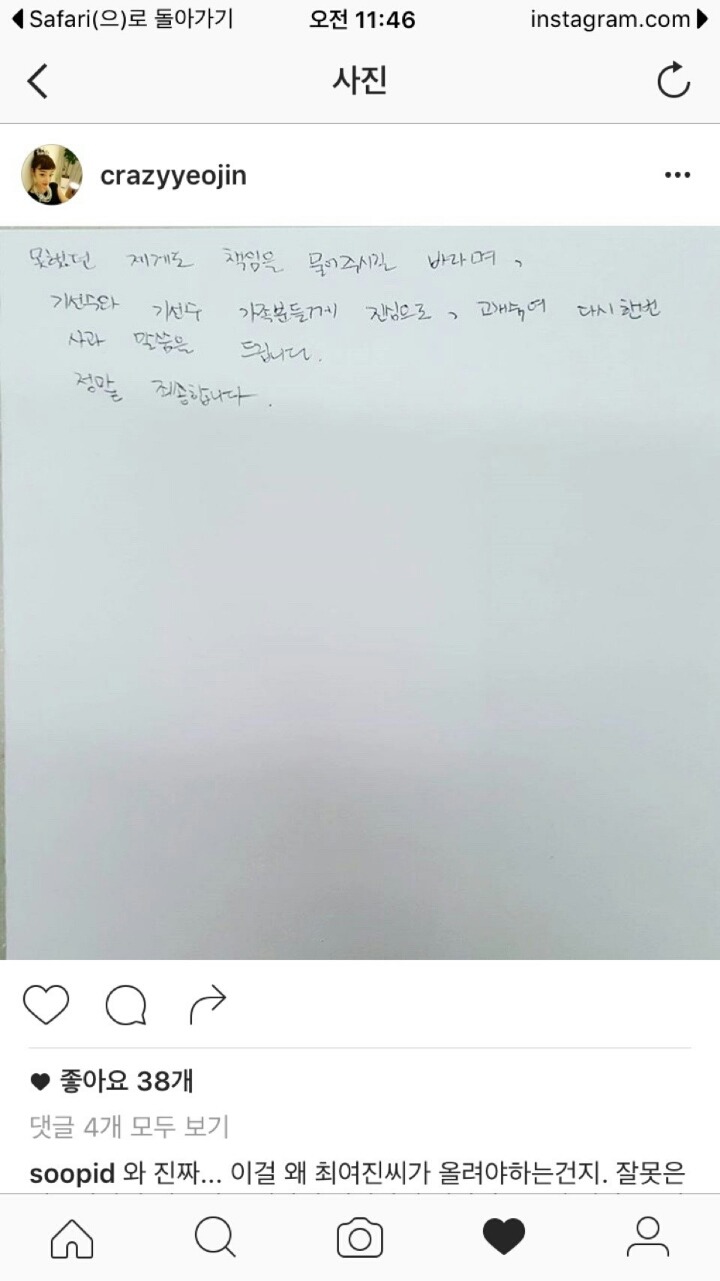 Safari(으)로 돌아가기 오전 11:46 instagram.com
사진
crazyyeojin
못했던 제게도 책임을 물어주시길 바라며,
기선수와 기선수 가족분들께 진심으로, 고개숙여 다시한번
사과 말씀을 드립니다.
정말 죄송합니다.
좋아요 38개
댓글 4개 모두 보기
soopid 와 진짜... 이걸 왜 최여진씨가 올려야하는건지. 잘못은